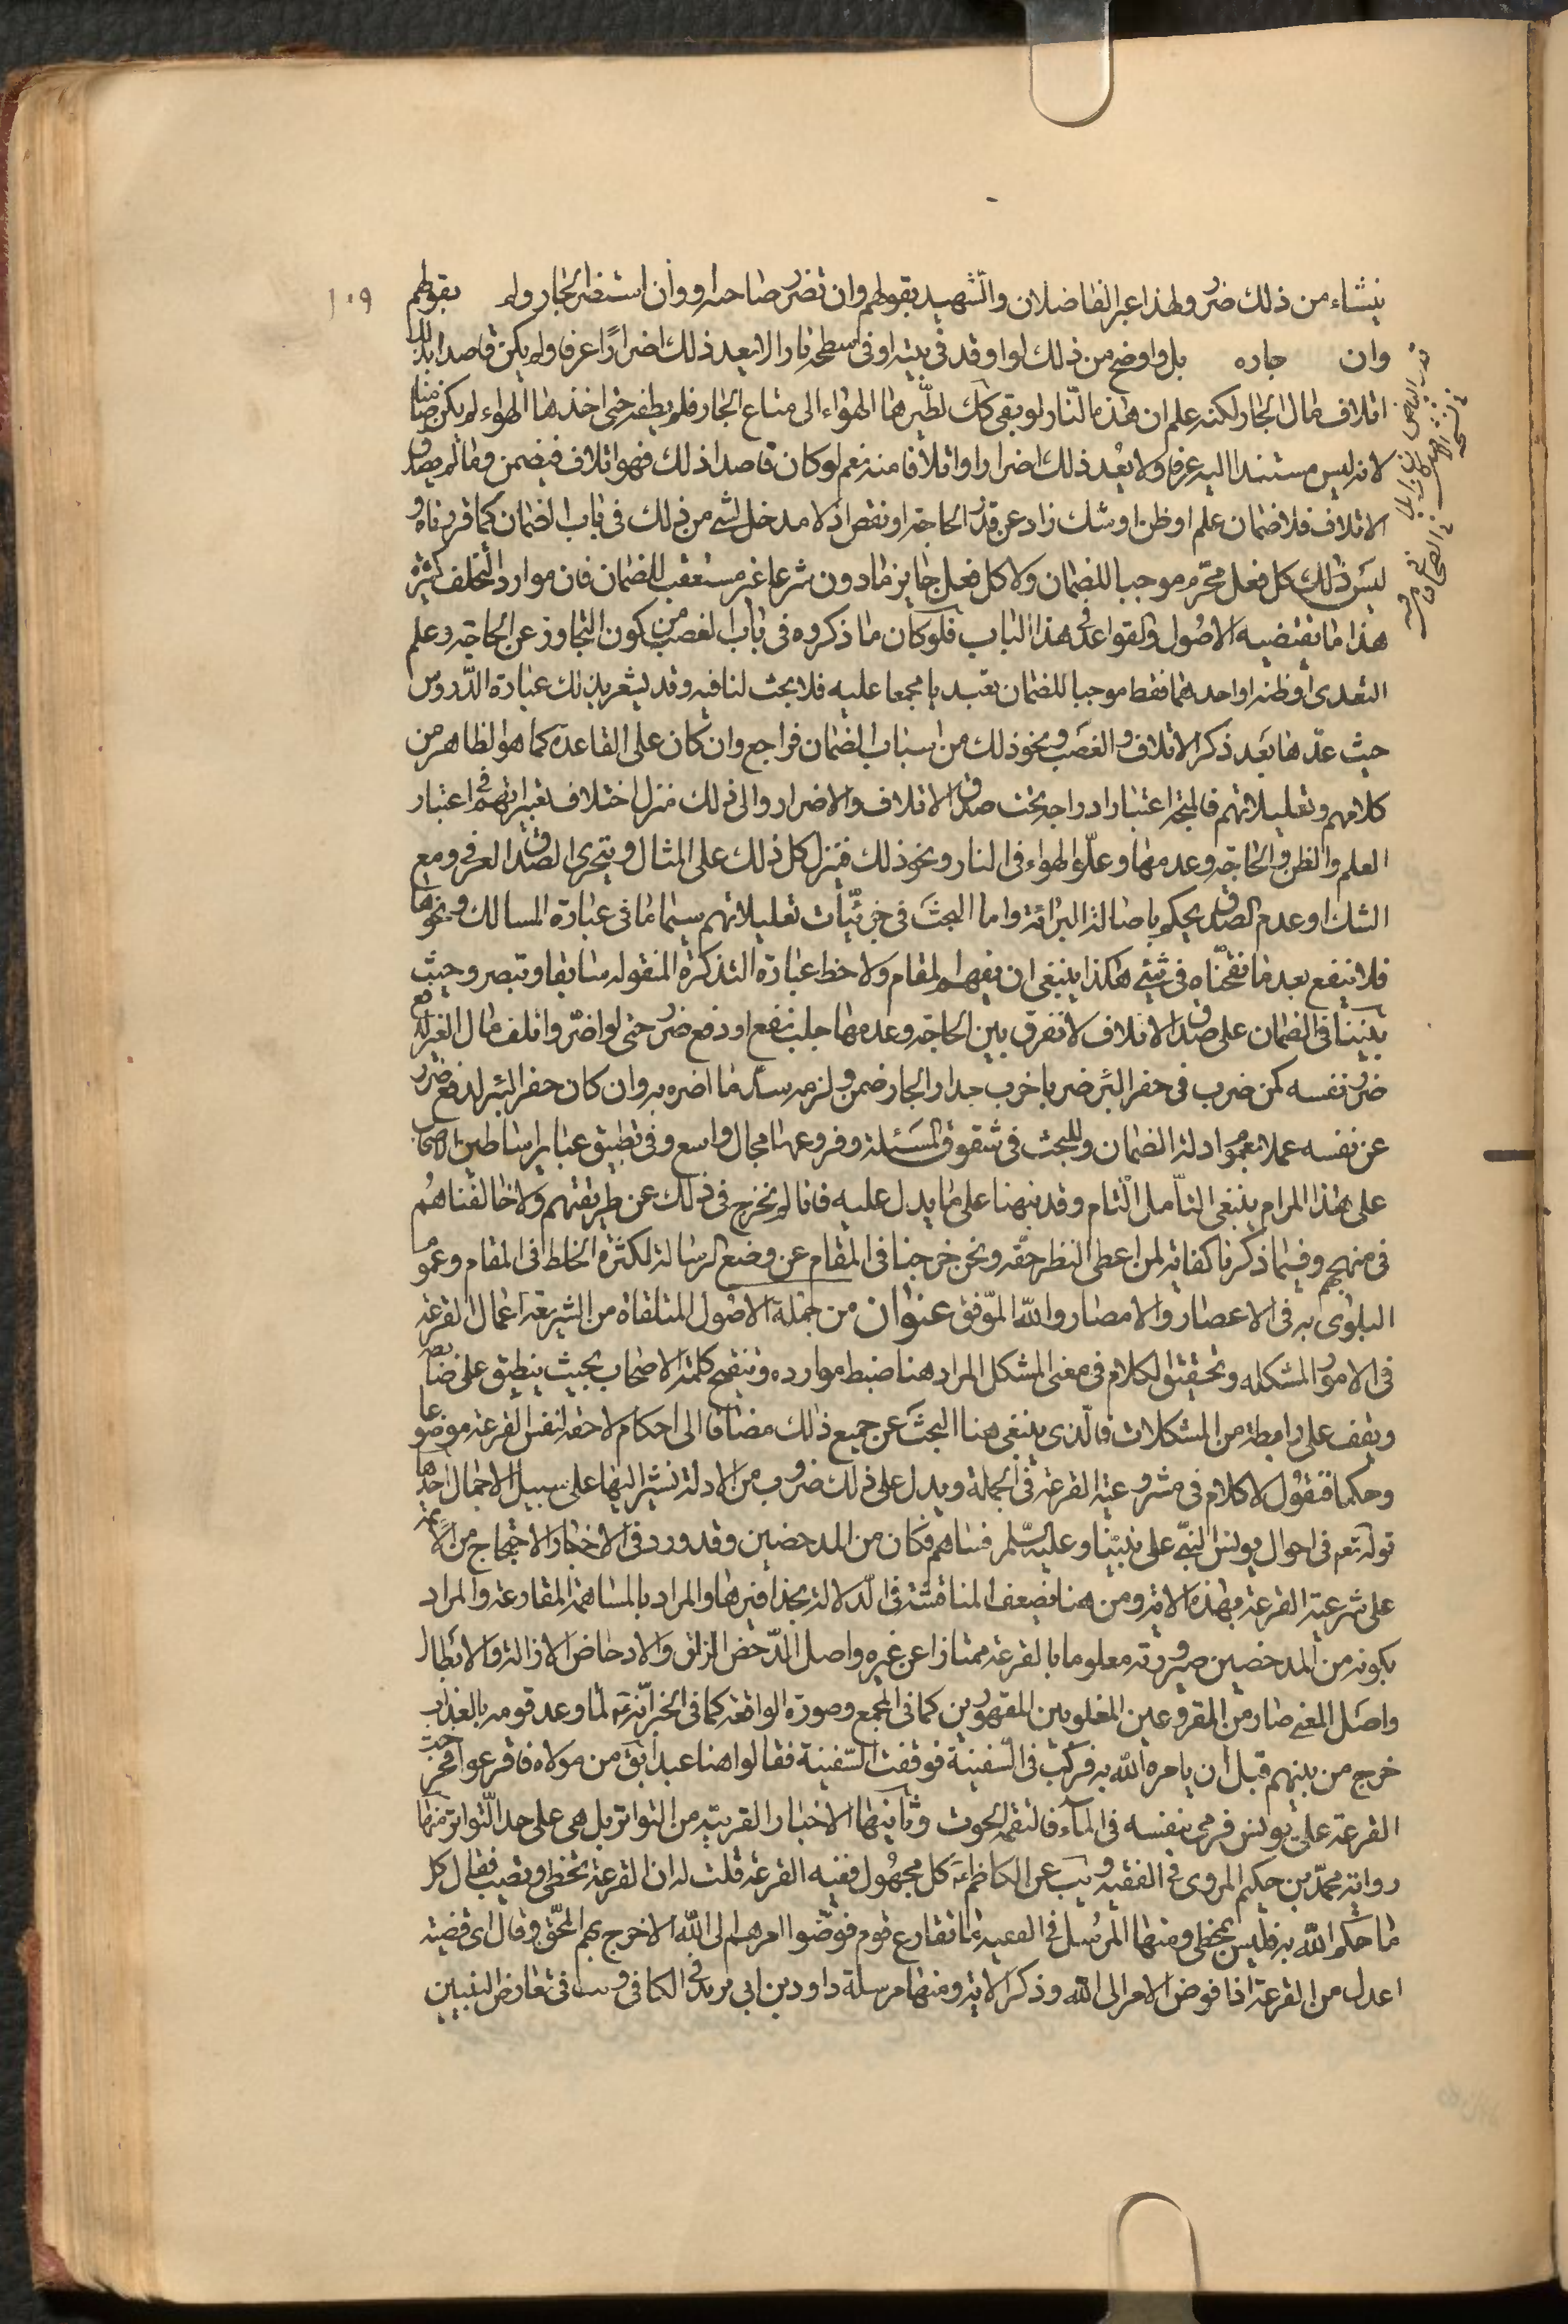 ينشاء من ذلك ضرر ولهذا عبر الفاضلان والشهيد بقولهم وان تضرر صاحبه او وان استضر الجار ولم بقولهم
١٠٩
وان جاره بل واوضح من ذلك لو اوقد فى بيته او فى سطحه نارا لا يعد ذلك اضرارًا عرفا ولم يكن قاصدا بذلك
اتلاف مال الجار لكنه علم ان هذه النّار لو بقى كك لطيّرها الهواء الى متاع الجار فلم يطفه حتى اخذها الهواء لم يكن ضامنا
لانه ليس مستندا اليه عرفا ولا يعُد ذلك اضرارا واتلافا منه نعم لو كان قاصدا ذلك فهو اتلاف فيضمن وما لم يصدق
الاتلاف فلا ضمان علم او ظن او شك زاد عن قدر الحاجة او نقص اذ لا مدخل لشئ من ذلك فى باب الضمان كما قررناه و
ليس ذلك كل فعل محرّم موجبا للضمان ولا كل فعل جايز مادون شرعا غير مستعقب للضمان فان موارد التخلف كثيرة
هذا ما يقتضيه الاصُول والقواعد فى هذا الباب فلو كان ما ذكروه فى باب الغصب من كون التجاوز عن الحاجة وعلم
التعدى او ظنه او احدهما فقط موجبا للضمان تعبد يا مجمعا عليه فلا بحث لنا فيه وقد يشعر بذلك عبارة الدّروس
حيث عدّها بعد ذكر الاتلاف والغصب ونحو ذلك من اسباب الضمان فراجع وان كان على القاعدة كما هو الظاهر من
كلامهم وتعليلاتهم فالمتجه اعتبار ادراجه تحت صدق الاتلاف والاضرار والى ذلك منزل اختلاف تعبيراتهم فى اعتبار
العلم والظن والحاجة وعدمها وعلّو الهواء فى النار ونحو ذلك فتنزل كل ذلك على المثال ويتحرى الصدق العرفى ومع
الشك او عدم الصدق يحكم باصالة البرائة واما البحث فى جزئيّات تعليلاتهم سيما ما فى عبارة المسالك ونحوها
فلا ينفع بعد ما نقحنّاه فى شيئ هكذا ينبغى ان يفهم المقام ولاحظ عبارة التذكرة المنقوله سابقا وتبصر وحيث
بنينا فى الضمان على صدق الاتلاف لا نفرق بين الحاجة وعدمها جلب نفع او دفع ضرر حتى لو اضّر واتلف مال الغير لدفع
ضرر نفسه كمن ضرب فى حفر البئر ضربا خرب جدار الجار ضمن ولزمه سد ما اضره به وان كان حفر البئر لدفع ضرر
عن نفسه عملا بعموم ادلة الضمان وللبحث فى شقوق المسئلة وفروعها مجال واسع وفى تطبيق عباير اساطين الاصحاب
على هذا المرام ينبغى التأمل التام وقد نبهنا على ما يدل عليه فانا لم نخرج فى ذلك عن طريقتهم ولا خالفناهُم
فى منهجهم وفيما ذكرنا كفاية لمن اعطى النظر حقّه ونحن خرجنا فى المقام عن وضع الرسالة لكثرة الخلط فى المقام وعموم
البلوى به فى الاعصار والامصار والله الموّفق عنوان من جملة الاصُول المتلقاة من الشريعة اعمال القرعة
فى الامور المشكله وتحقيق الكلام فى معنى المشكل المراد هنا ضبط موارده وتنقيح كلمة الاصحاب بحيث ينطبق على ضابطه
ويقف على رابطة من المشكلات فالّذى ينبغى هنا البحث عن جميع ذلك مضافا الى احكام لاحقه لنفس القرعة موضوعا
وحكما فنقوُل لا كلام فى مشروعية القرعة فى الجملة ويدل على ذلك ضروب من الادلة نشير اليها على سبيل الاجمال احدها
قوله تعم فى احوال يونس النبّي على نبينّا وعليه السّلم فساهم فكان من المدحضين وقد ورد فى الاخبار الاحتجاج من الائمة
على شرعية القرعة بهذه الاية ومن هنا يضعف المناقشة فى الدّلالة بحذافيرها والمراد بالمساهمة المقارعة والمراد
بكونه من المدحضين صيرورته معلوما بالقرعة ممتازا عن غيره واصل الدّحض الزلق والادحاض الازالة والابطال
واصل المعنى صار من المقروعين المغلوبين المقهورين كما فى المجمع وصورة الواقعة كما فى الخبر انّه ع لما وعد قومه بالعذاب
خرج من بينهم قبل ان يامره الله به فركب فى السّفينة فوقفت السّفينة فقالوا هنا عبد ابق من مولاه فاقرعوا فخرجت
القرعة على يونس فرمى بنفسه فى المآء فالتقمه الحوت وثانيها الاخبار القريبة من التواتر بل هى على حد التّواتر منها
رواية محمّد بن حكيم المروى فى الفقيه ويب عن الكاظم ع كل مجهُول ففيه القرعة قلت له ان القرعة تخطى وتصيب فقال كل
ما حكم الله به فليس بمخطى ومنها المرسُل فى الفقيه ما تقارع قوم فوضّوا امرهم الى الله الا خرج سهم المحّق وقال اى قضية
اعدل من القرعة اذا فوض الامر الى الله وذكر الاية ومنها مرسلة داود بن ابى يزيد فى الكافى ويب فى تعارض البينين